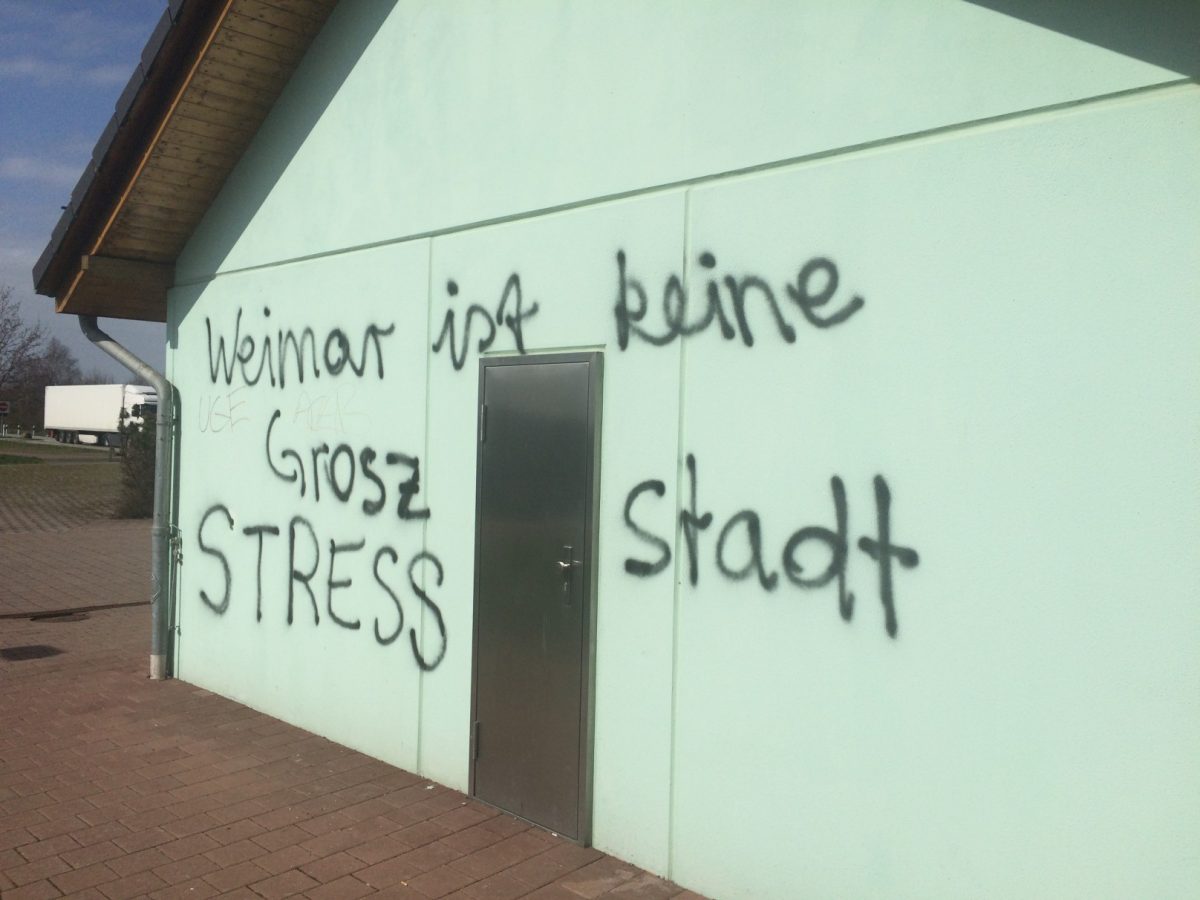 Weimar ist keine
Grosz Stadt
STRESS
UGE